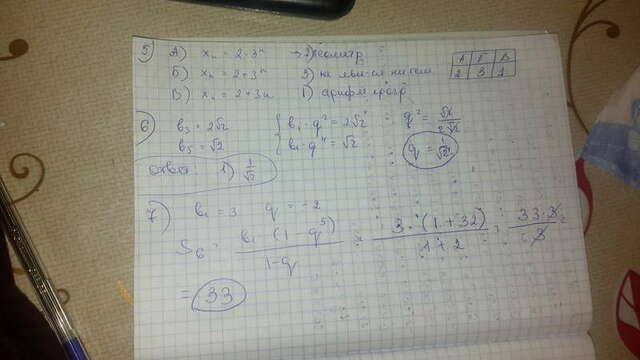 5) А) xₙ = 2·3ⁿ → 2) геометр
Б) xₙ = 2+3ⁿ 3) не явл-ся ни тем
В) xₙ = 2+3n 1) арифм прогр
А Б В
2 3 1
6) b₃ = 2√2 { b₁·q² = 2√2 : q² = √2/2√2
b₅ = √2 b₁·q⁴ = √2
Ответ: 1) 1/√2
7) b₁ = 3 q = -2
S₆ = b₁(1-q⁵)/1-q = 3·(1+32)/1+2 = 33·3/3
= 33